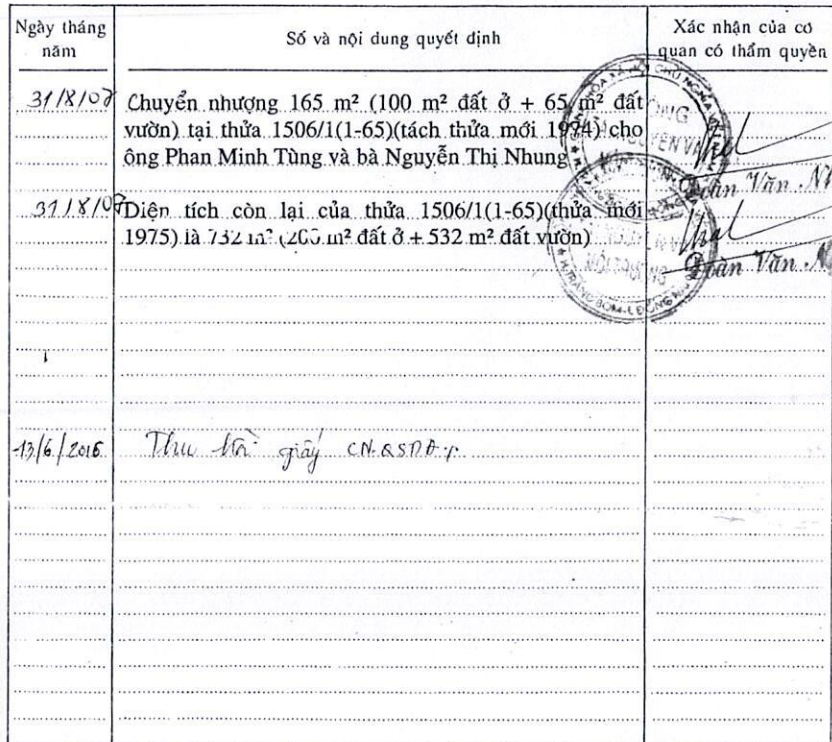 Ngày tháng năm
Số và nội dung quyết định
Xác nhận của cơ quan có thẩm quyền
31/8/07
Chuyển nhượng 165 m² (100 m² đất ở + 65 m² đất
vườn) tại thửa 1506/1(1-65)(tách thửa mới 1974) cho
ông Phan Minh Tùng và bà Nguyễn Thị Nhung
Đoàn Văn
31/8/07
Diện tích còn lại của thửa 1506/1(1-65)(thửa mới
1975) là 732 m² (200 m² đất ở + 532 m² đất vườn)
Đoàn Văn
H.TRẢNG BOM-T.ĐỒNG NAI
13/6/2016
Thu hồi giấy CN.QSDĐ